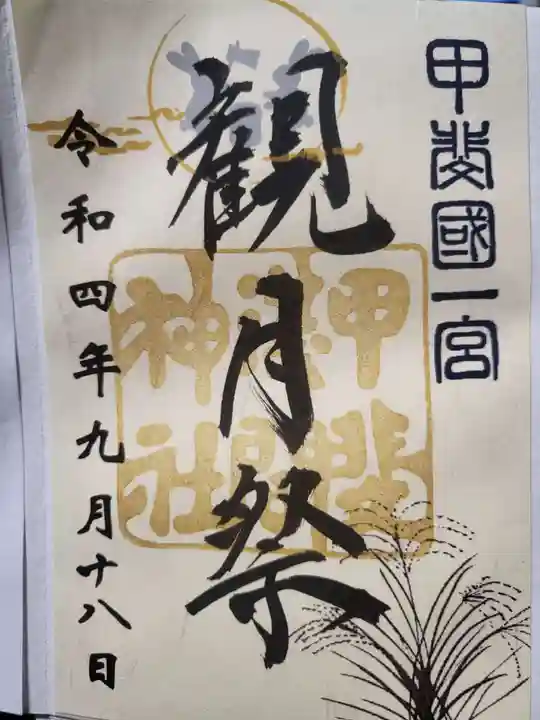 甲斐國一宮
観月祭
甲斐
淺間
神社
令和四年九月十八日